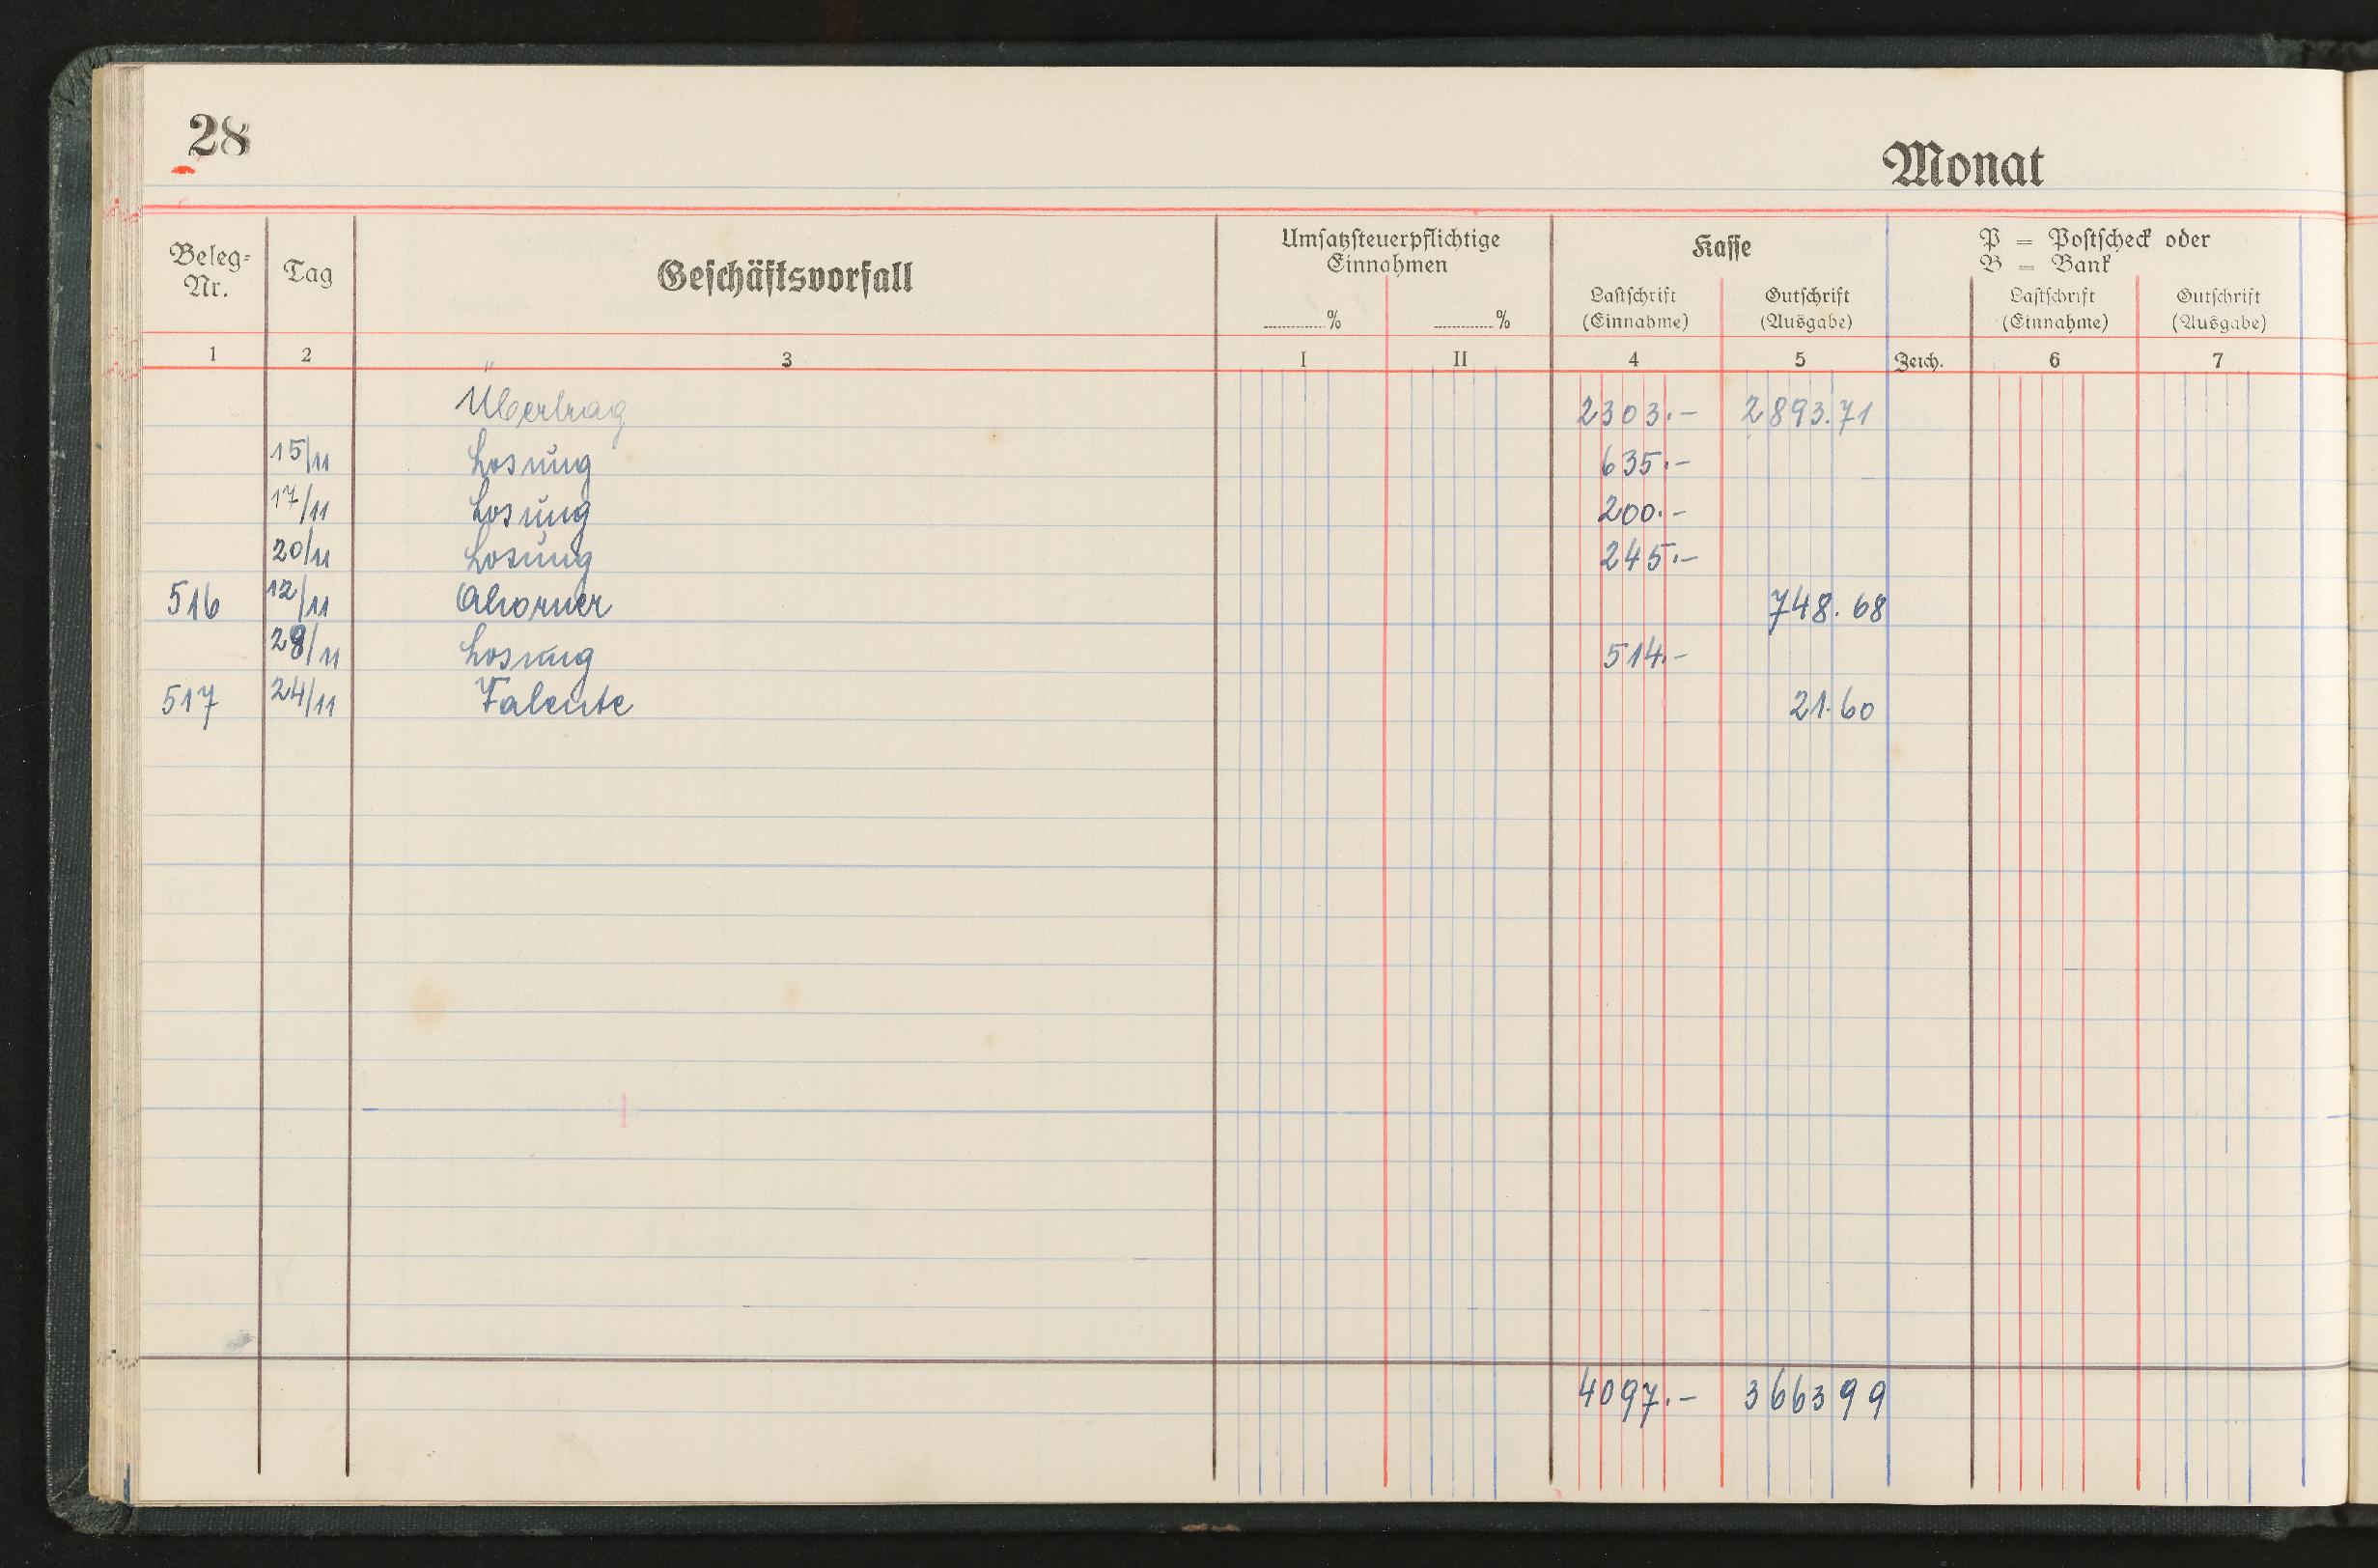 28
Monat
Beleg-Nr. Tag Geschäftsvorfall Umsatzsteuerpflichtige Einnahmen Kasse P = Postscheck oder B = Bank
..........% ..........% Lastschrift (Einnahme) Gutschrift (Ausgabe) Lastschrift (Einnahme) Gutschrift (Ausgabe)
1 2 3 I II 4 5 Zeich. 6 7
Übertrag 2303.- 2893.71
15/11 Losung 635.-
17/11 Losung 200.-
20/11 Losung 245.-
516 12/11 Ahorner 748.68
28/11 Losung 514.-
517 24/11 Talente 21.60
4097.- 366399